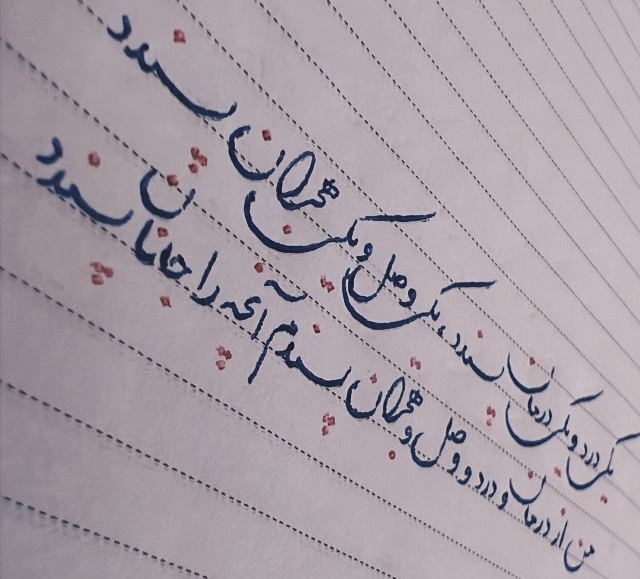 یکی درد و یکی درمان پسندد، یکی وصل و یکی هجران پسندد
من از درمان و درد و وصل و هجران پسندم آنچه را جانان پسندد